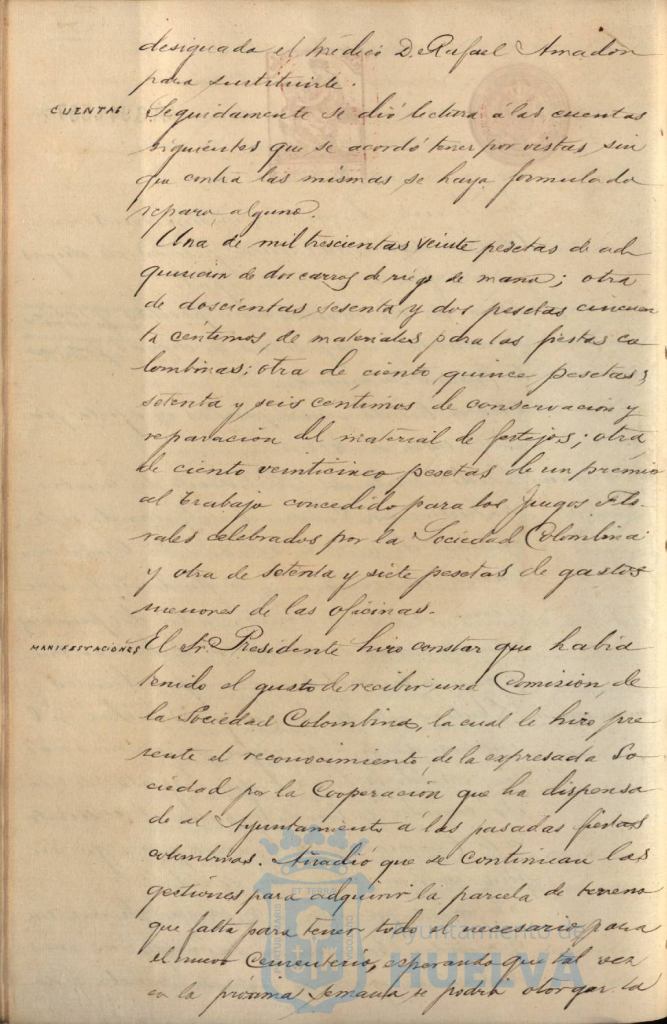 designada el médico D. Rafael Amador
para sustituirle.
CUENTAS
Seguidamente se dió lectura á las cuentas
siguientes que se acordó tener por vistas sin
que contra las mismas se haya formulado
reparo alguno.
Una de mil trescientas veinte pesetas de ad
quisicion de dos carros de riego de mano; otra
de doscientas sesenta y dos pesetas cincuen
ta céntimos, de materiales para las fiestas co
lombinas; otra de ciento quince pesetas
setenta y seis centimos de conservación y
reparacion del material de festejos; otra
de ciento veinticinco pesetas de un premio
al trabajo concedido para los Juegos Flo-
rales celebrados por la Sociedad Colombina
y otra de setenta y siete pesetas de gastos
menores de las oficinas.
MANIFESTACIONES
El Sr. Presidente hizo constar que habia
tenido el gusto de recibir una Comision de
la Sociedad Colombina, la cual le hizo pre
sente el reconocimiento de la expresada So
ciedad por la Cooperación que ha dispensa
do al Ayuntamiento á las pasadas fiestas
colombinas. Añadió que se continuan las
gestiones para adquirir la parcela de terreno
que falta para tener todo el necesario para
el nuevo Cementerio, esperando que tal vez
en la proxima semana se podrá otorgar la
Ayuntamiento de
HUELVA